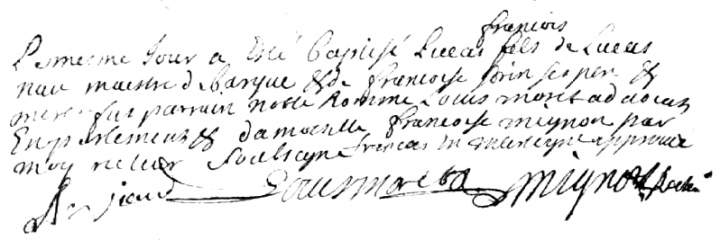 francois
Le mesme Jour a Esté baptisé Lucas fils de Lucas
nau maistre de barque & de francoise Jorin ses pere &
mere fut parrain noble homme Louis moret advocat
En parlement & damoiselle francoise mignon par
moy recteur soubsigné francois en interligne approuvé
Louis moret mignon